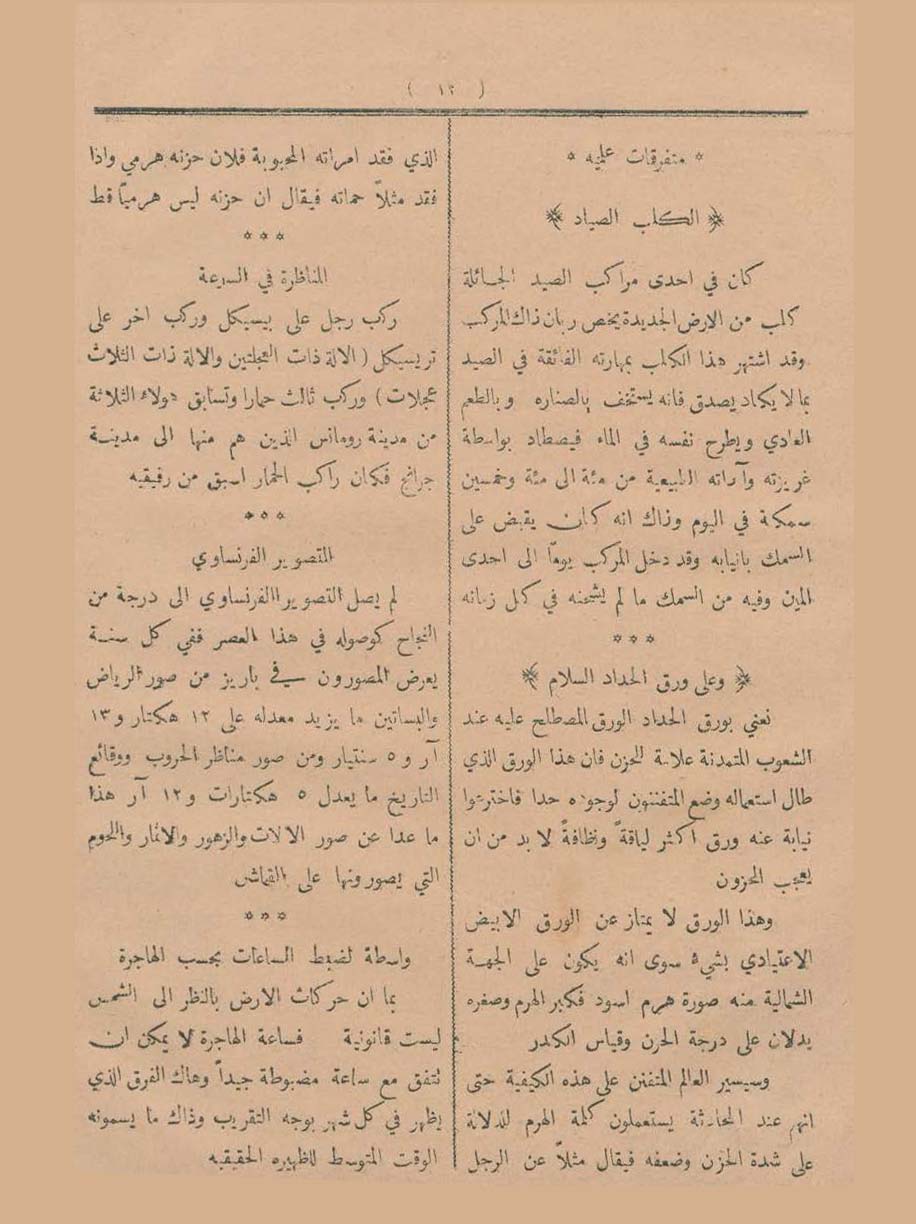 ( ١٢ )
* متفرقات علميه *
﴿ الكلب الصياد ﴾
كان في احدى مراكب الصيد الجائلة
كلب من الارض الجديدة يخص ربان ذاك المركب
وقد اشتهر هذا الكلب بمهارته الفائقة في الصيد
بما لا يكاد يصدق فانه يستخف بالصناره وبالطعم
العادي ويطرح نفسه في الماء فيصطاد بواسطة
غريزته وآداته الطبيعية من مئة الى مئة وخمسين
سمكة في اليوم وذاك انه كان يقبض على
السمك بانيابه وقد دخل المركب يوماً الى احدى
المدن وفيه من السمك ما لم يشحنه في كل زمانه
* * *
﴿ وعلى ورق الحداد السلام ﴾
نعني بورق الحداد الورق المصطلح عليه عند
الشعوب المتمدنة علامة للحزن فان هذا الورق الذي
طال استعماله وضع المتفننون لوجوده حدا فاخترعوا
نيابة عنه ورق اكثر لياقةً ونظافةً لا بد من ان
يعجب المحزون
وهذا الورق لا يمتاز عن الورق الابيض
الاعتيادي بشيء سوى انه يكون على الجهة
الشمالية منه صورة هرم اسود فكبر الهرم وصغره
يدلان على درجة الحزن وقياس الكدر
وسيسير العالم المتفنن على هذه الكيفية حتى
انهم عند المحادثة يستعملون كلمة الهرم للدلالة
على شدة الحزن وضعفه فيقال مثلاً عن الرجل
الذي فقد امراته المحبوبة فلان حزنه هرمي واذا
فقد مثلاً حماته فيقال ان حزنه ليس هرمياً قط
* * *
المناظرة في السرعة
ركب رجل على بيسيكل وركب اخر على
تريسيكل ( الالة ذات العجلتين والالة ذات الثلاث
عجلات ) وركب ثالث حمارا وتسابق هولاء الثلاثة
من مدينة رومانس الذين هم منها الى مدينة
جرانج فكان راكب الحمار اسبق من رفيقيه
* * *
التصوير الفرنساوي
لم يصل التصوير الفرنساوي الى درجة من
النجاح كوصوله في هذا العصر ففي كل سنة
يعرض المصورون في باريز من صور الرياض
والبساتين ما يزيد معدله على ١٢ هكتار و١٣
آر و٥ سنتيار ومن صور مناظر الحروب ووقائع
التاريخ ما يعدل ٥ هكتارات و١٢ آر هذا
ما عدا عن صور الالات والزهور والاثمار واللحوم
التي يصورونها على القماش
* * *
واسطة لضبط الساعات بحسب الهاجرة
بما ان حركات الارض بالنظر الى الشمس
ليست قانونية فساعة الهاجرة لا يمكن ان
تتفق مع ساعة مضبوطة جيداً وهاك الفرق الذي
يظهر في كل شهر بوجه التقريب وذاك ما يسمونه
الوقت المتوسط للظهيره الحقيقيه